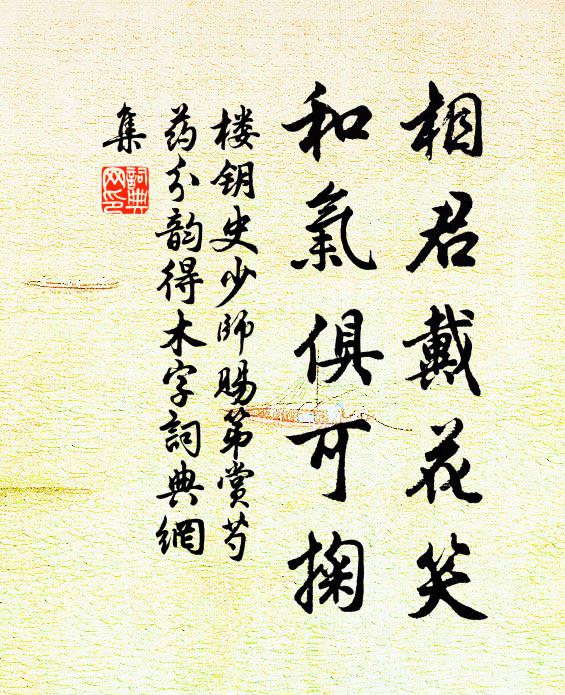 相君戴花笑
和氣俱可掬
楼钥史少师赐第赏芍
药分韵得木字詞典網
集
詞典
网印